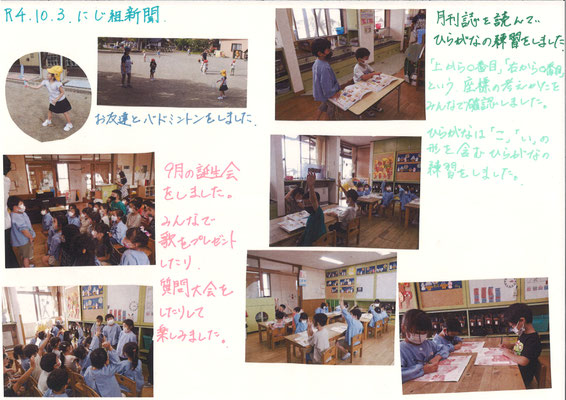 R4.10.3. にじ組新聞
お友達とバドミントンをしました。
9月の誕生会
をしました。
みんなで
歌をプレゼント
したり、
質問大会を
したりして
楽しみました。
月刊誌を読んで、
ひらがなの練習をしました
「上から〇番目」「右から〇番目」
という、座標の考えかたを
みんなで確認しました。
ひらがなは「こ」「い」の
形を含むひらがなの
練習をしました。